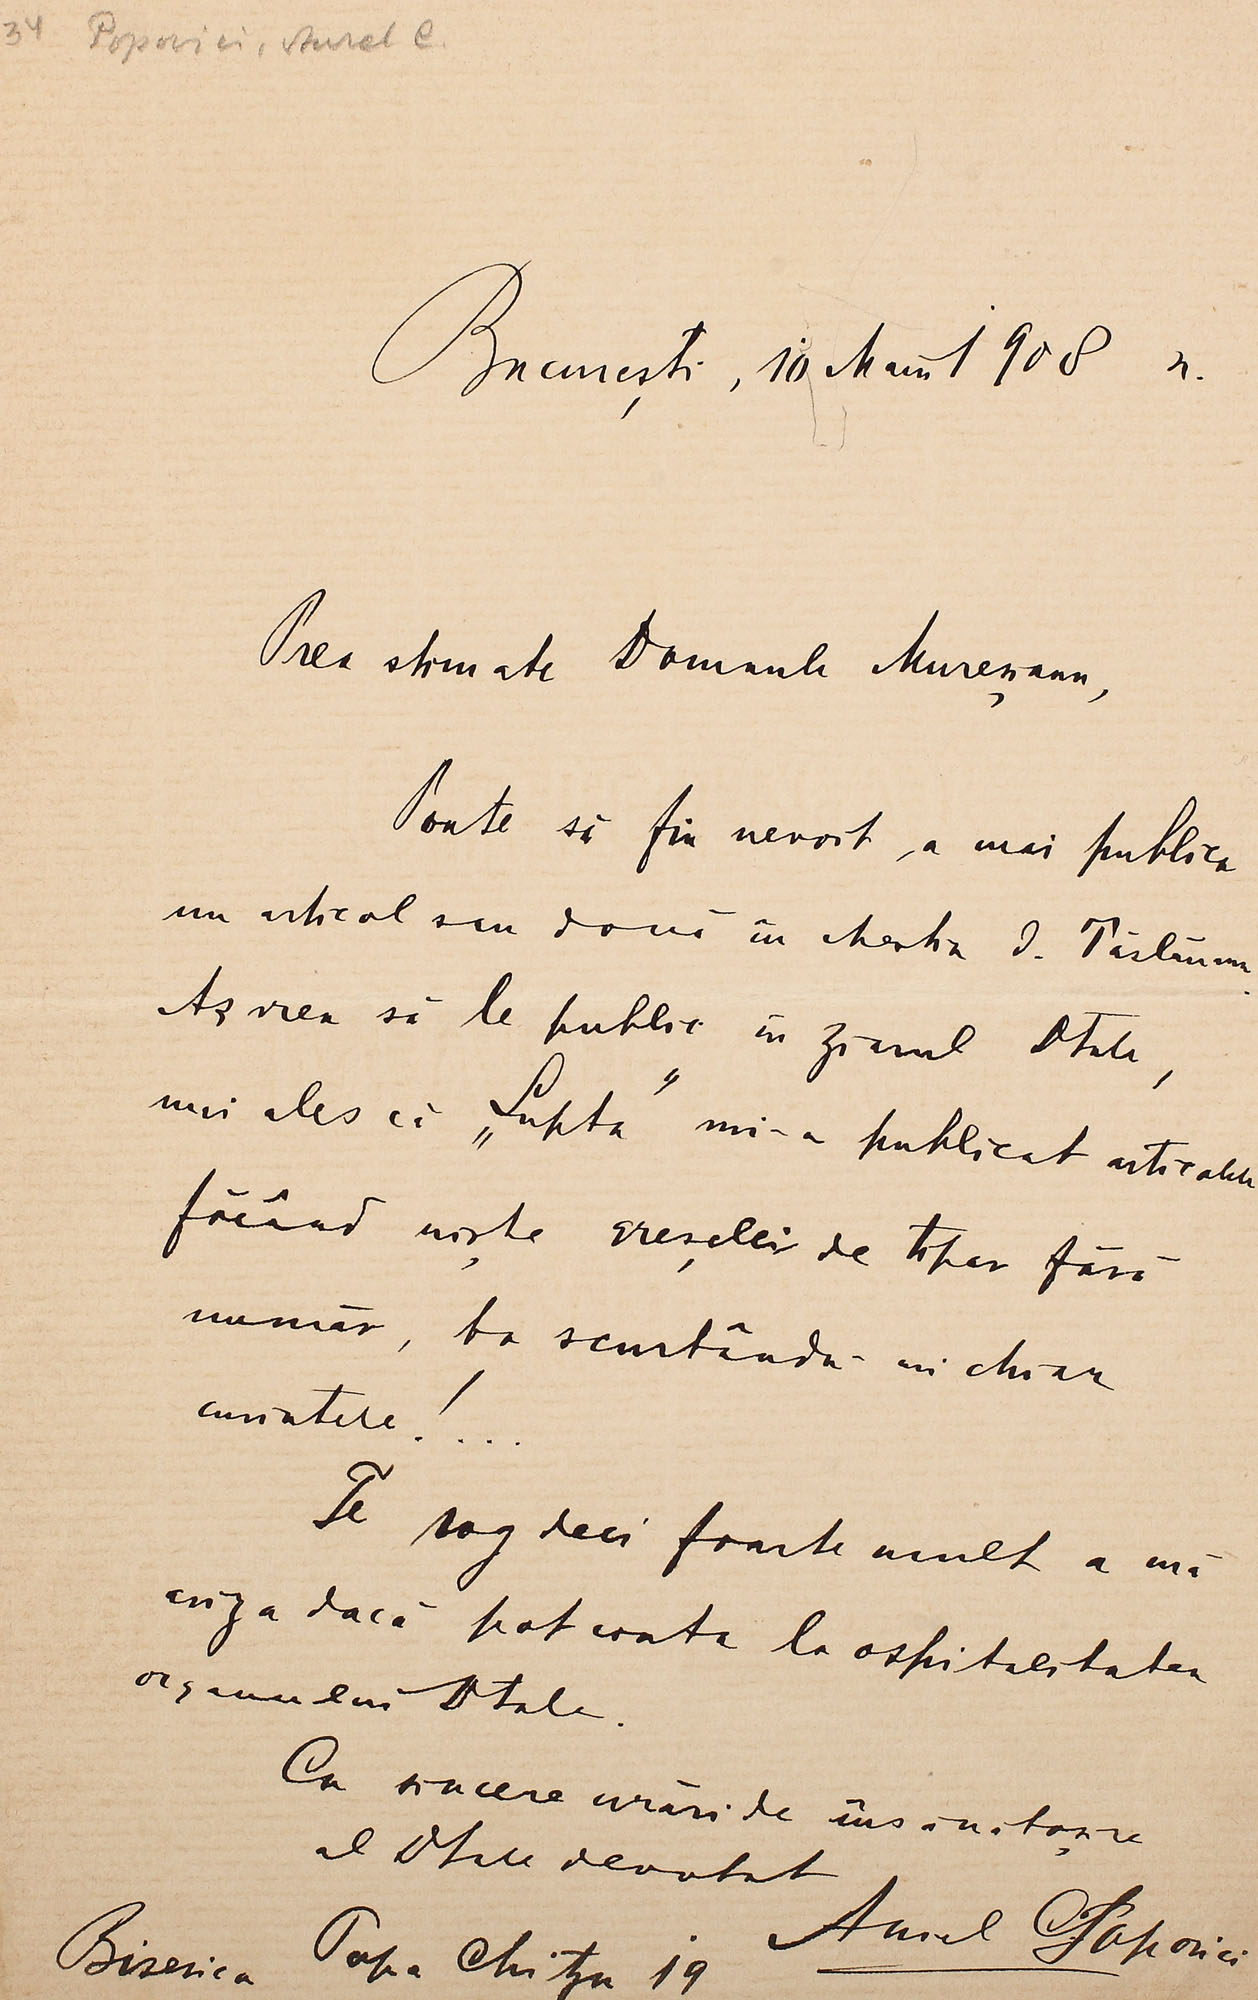 34 Popovici, Aurel C.
București, 10 Maiu 1908 n.
Prea stimate Domnule Mureșanu,
Poate să fiu nevoit, a mai publica
un articol sau două în chestia d. Tăslăuanu.
Aș vrea să le public în ziarul Dtale,
mai ales că „Lupta" mi-a publicat articolele
făcând niște greșeli de tipar fără
număr, ba scurtându-mi chiar
cuvintele!...
Te rog deci foarte mult a mă
aviza dacă pot conta la ospitalitatea
organului Dtale.
Cu sincere urări de însănătoșire
al Dtale devotat
Aurel C Popovici
Biserica Popa Chițu 19